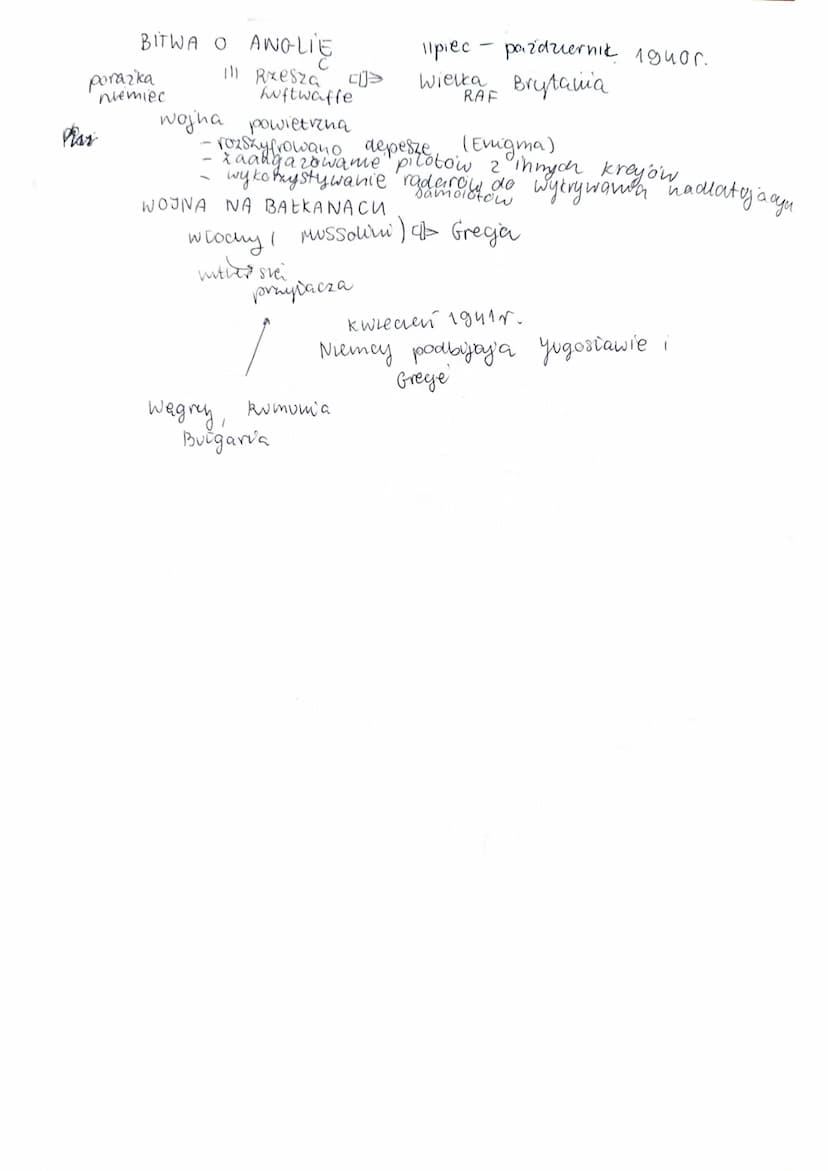 BITWA O ANGLIĘ lipiec – październik 1940r.
porażka III Rzesza <=> Wielka Brytania
niemiec Luftwaffe RAF
wojna powietrzna
- rozszyfrowano depesze (Enigma)
- zaangażowanie pilotów z innych krajów
- wykorzystywanie radarów do wykrywania nadlatujących
samolotów
WOJNA NA BAŁKANACH
Włochy (Mussolini) <=> Grecja
się
przyłącza
kwiecień 1941r.
Niemcy podbijają Jugosławie i
Grecje
Węgry, Rumunia
Bułgaria